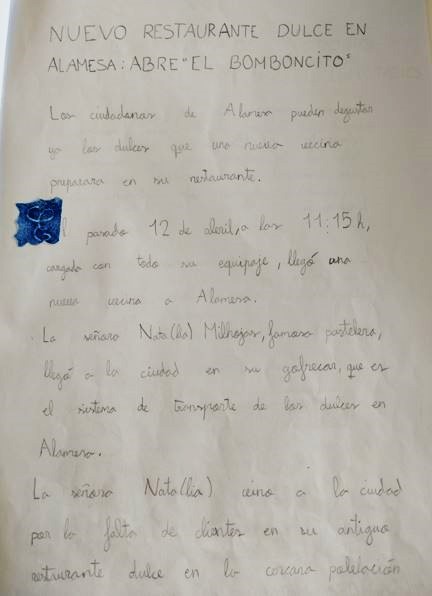 NUEVO RESTAURANTE DULCE EN
ALAMESA: ABRE "EL BOMBONCITO"
Los ciudadanos de Alamesa pueden degustar
ya los dulces que una nueva vecina
preparará en su restaurante.
El pasado 12 de abril, a las 11:15 h,
cargada con todo su equipaje, llegó una
nueva vecina a Alamesa.
La señora Nata(lia) Milhojas, famosa pastelera,
llegó a la ciudad en su gofrecar, que es
el sistema de transporte de los dulces en
Alamesa.
La señora Nata(lia) vino a la ciudad
por la falta de clientes en su antiguo
restaurante dulce en la cercana población